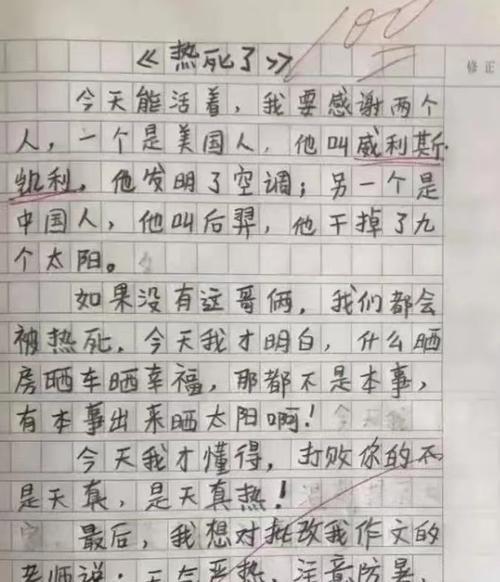 《热死了》
100
修正
今天能活着，我要感谢两个
人，一个是美国人，他叫威利斯·
凯利，他发明了空调；另一个是
中国人，他叫后羿，他干掉了九
个太阳。
如果没有这哥俩，我们都会
被热死，今天我才明白，什么晒
房晒车晒幸福，那都不是本事，
有本事出来晒太阳啊！
今天我才懂得，打败你的不
是天真，是天真热！
最后，我想对批改我作文的
老师说：天气严热，注意防暑，